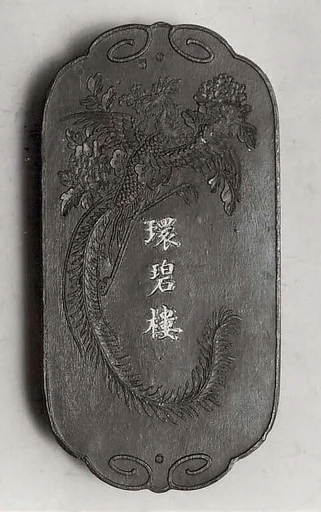 環碧樓